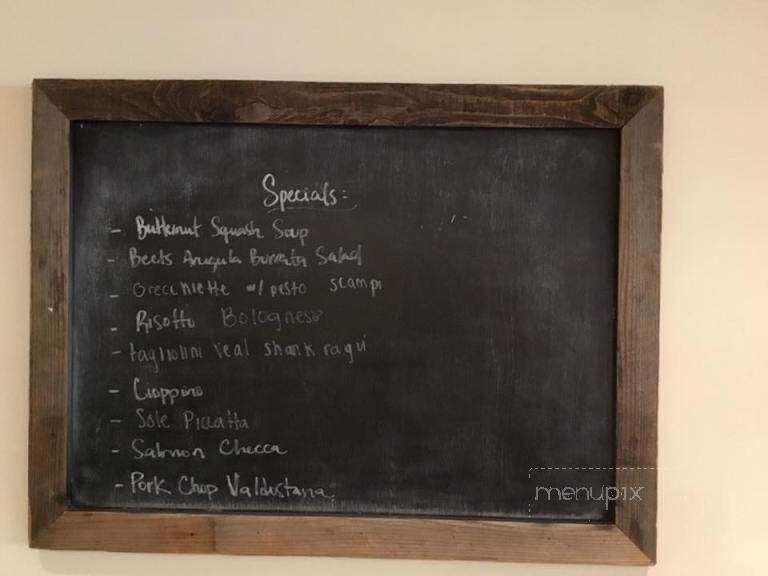 Specials:
- Butternut Squash Soup
- Beets Arugula Burrata Salad
- Orecchiette w/ pesto scampi
- Risotto Bolognese
- tagliolini veal shank ragu
- Cioppino
- Sole Piccatta
- Salmon Checca
- Pork Chop Valdostana
menupix